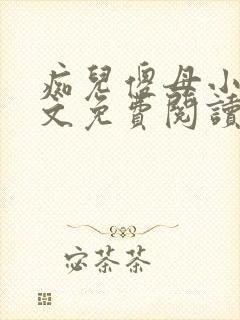 痴兒傻母小
文免費閱讀
宓茶茶